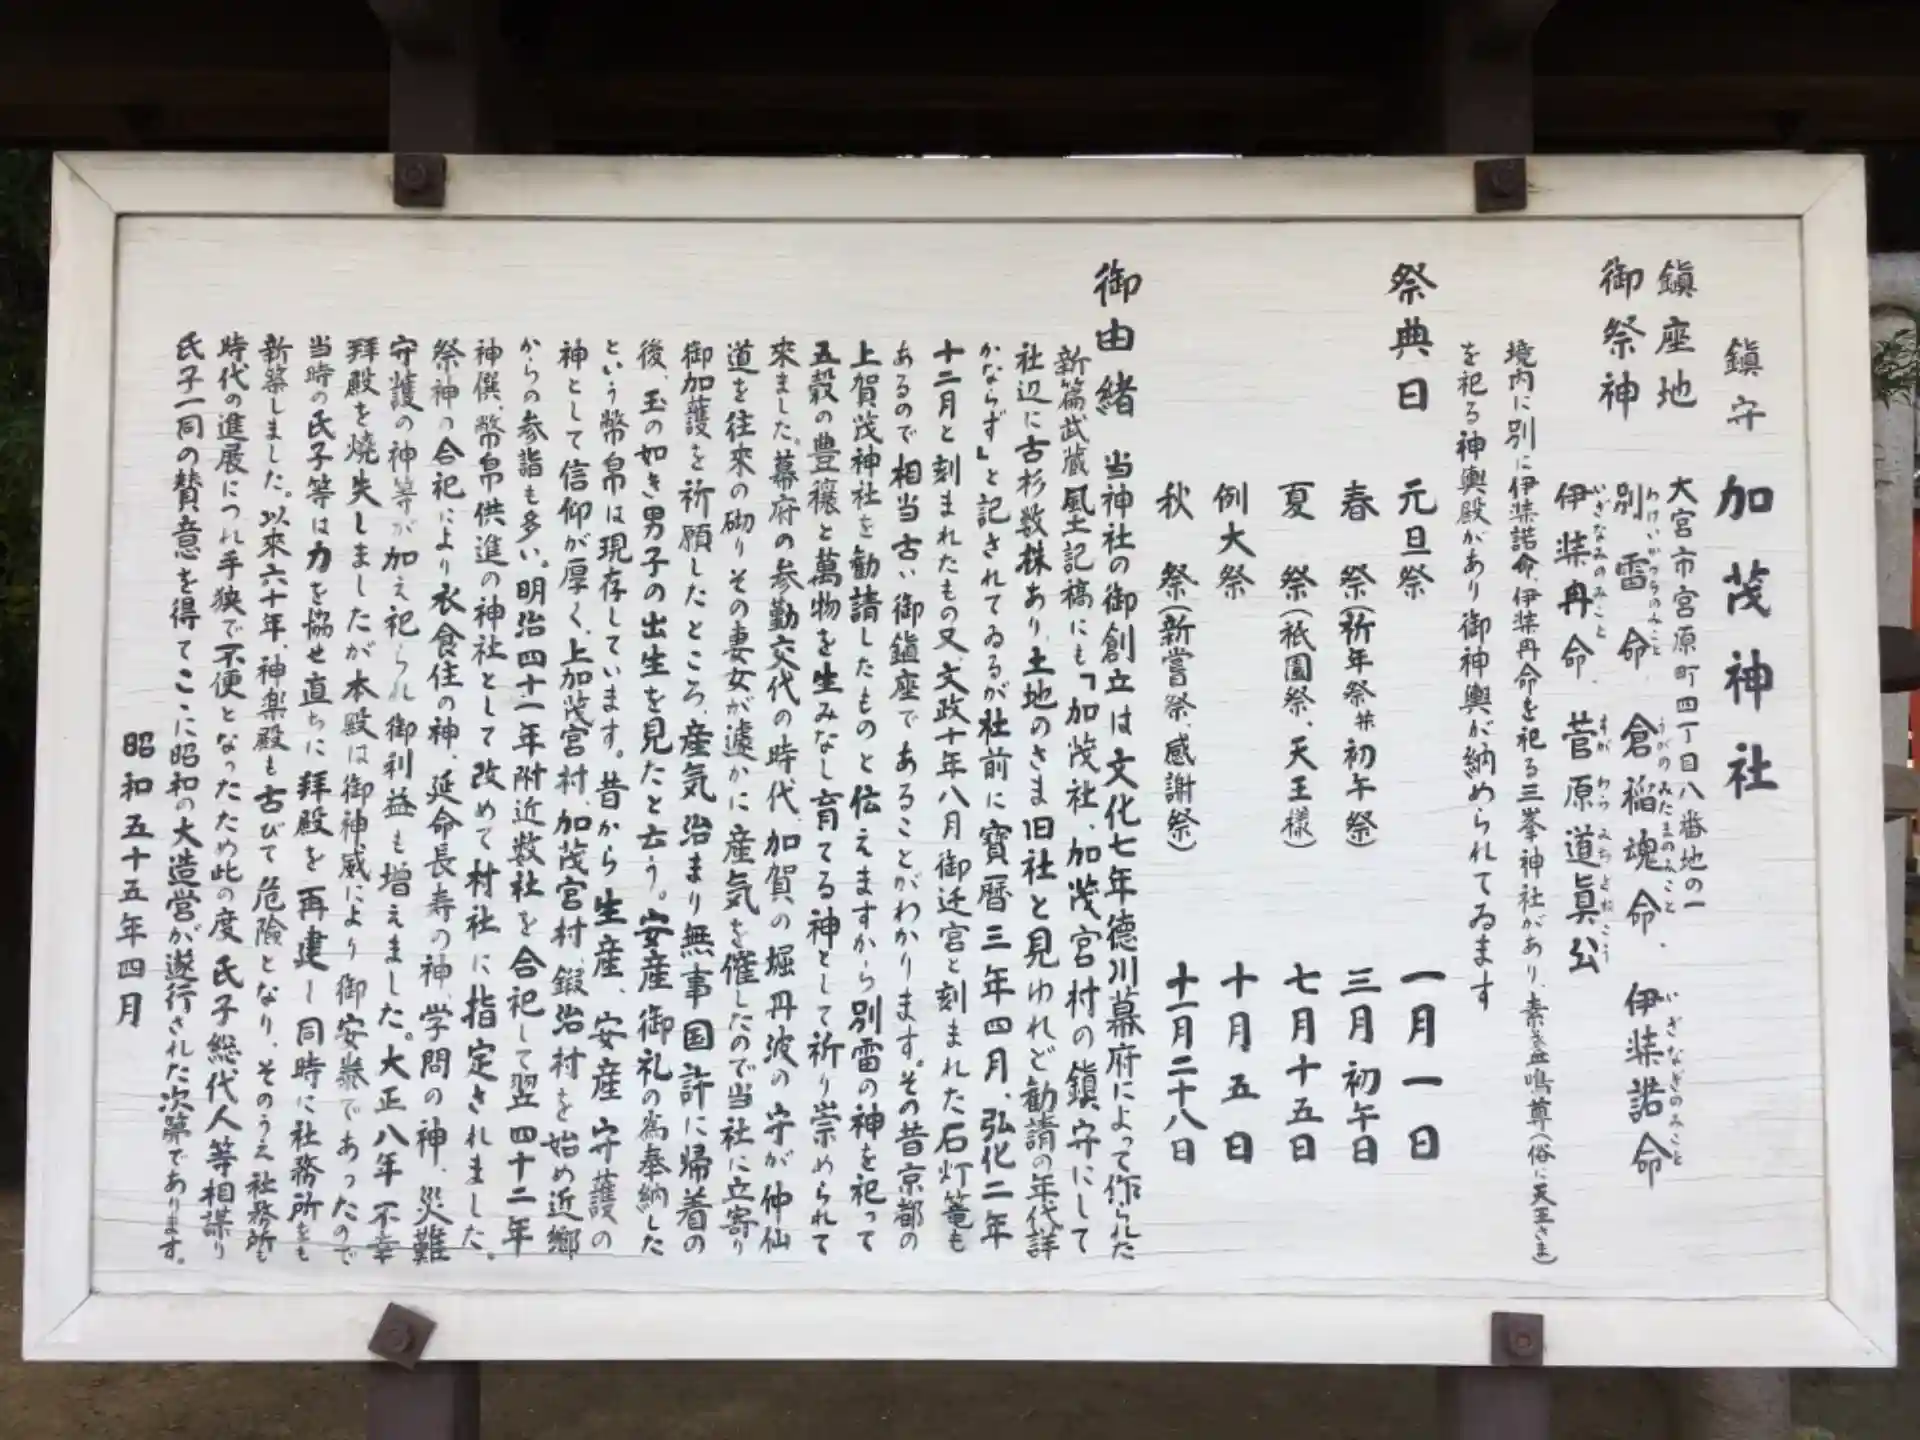 鎮守 加茂神社
鎮座地 大宮市宮原町四丁目八番地の一
御祭神 別雷命、倉稲魂命、伊弉諾命
わけいかづちのみこと うがのみたまのみこと いざなぎのみこと
伊弉冉命、菅原道眞公
いざなみのみこと すがわらみちざねこう
境内に別に伊弉諾命、伊弉冉命を祀る三峯神社があり、素盞鳴尊(俗に天王さま)
を祀る神輿殿があり御神輿が納められてゐます
祭典日 元旦祭 一月一日
春祭(祈年祭并初午祭) 三月初午日
夏祭(祇園祭、天王様) 七月十五日
例大祭 十月五日
秋祭(新嘗祭、感謝祭) 十一月二十八日
御由緒 当神社の御創立は文化七年徳川幕府によって作られた
新篇武蔵風土記稿にも「加茂社、加茂宮村の鎮守にして
社辺に古杉数株あり、土地のさま旧社と見ゆれど勧請の年代詳
かならず」と記されてゐるが社前に寶暦三年四月、弘化二年
十二月と刻まれたもの又、文政十年八月御迁宮と刻まれた石灯篭も
あるので相当古い御鎮座であることがわかります。その昔京都の
上賀茂神社を勧請したものと伝えますから別雷の神を祀って
五穀の豊穣と萬物を生みなし育てる神として祈り崇められて
来ました。幕府の参勤交代の時代、加賀の堀丹波の守が仲仙
道を往来の砌りその妻女が遽かに産気を催したので当社に立寄り
御加護を祈願したところ、産気治まり無事国許に帰着の
後、玉の如き男子の出生を見たと云う。安産御礼の為奉納した
という幣帛は現存しています。昔から生産、安産守護の
神として信仰が厚く、上加茂宮村、加茂宮村、鍜治村を始め近郷
からの参詣も多い。明治四十一年附近数社を合祀して翌四十二年
神饌、幣帛供進の神社として改めて村社に指定されました。
祭神の合祀により衣食住の神、延命長寿の神、学問の神、災難
守護の神等が加え祀られ御利益も増えました。大正八年不幸
拝殿を焼失しましたが本殿は御神威により御安泰であったので
当時の氏子等は力を協せ直ちに拝殿を再建し同時に社務所をも
新築しました。以来六十年、神楽殿も古びて危険となり、そのうえ社務所も
時代の進展につれ手狭で不便となったため此の度氏子総代人等相謀り
氏子一同の賛意を得てここに昭和の大造営が遂行された次第であります。
昭和五十五年四月